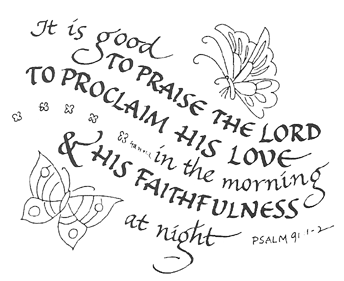 It is good
TO PRAISE THE LORD
TO PROCLAIM HIS LOVE
in the morning
& HIS FAITHFULNESS
at night
PSALM 91 1-2